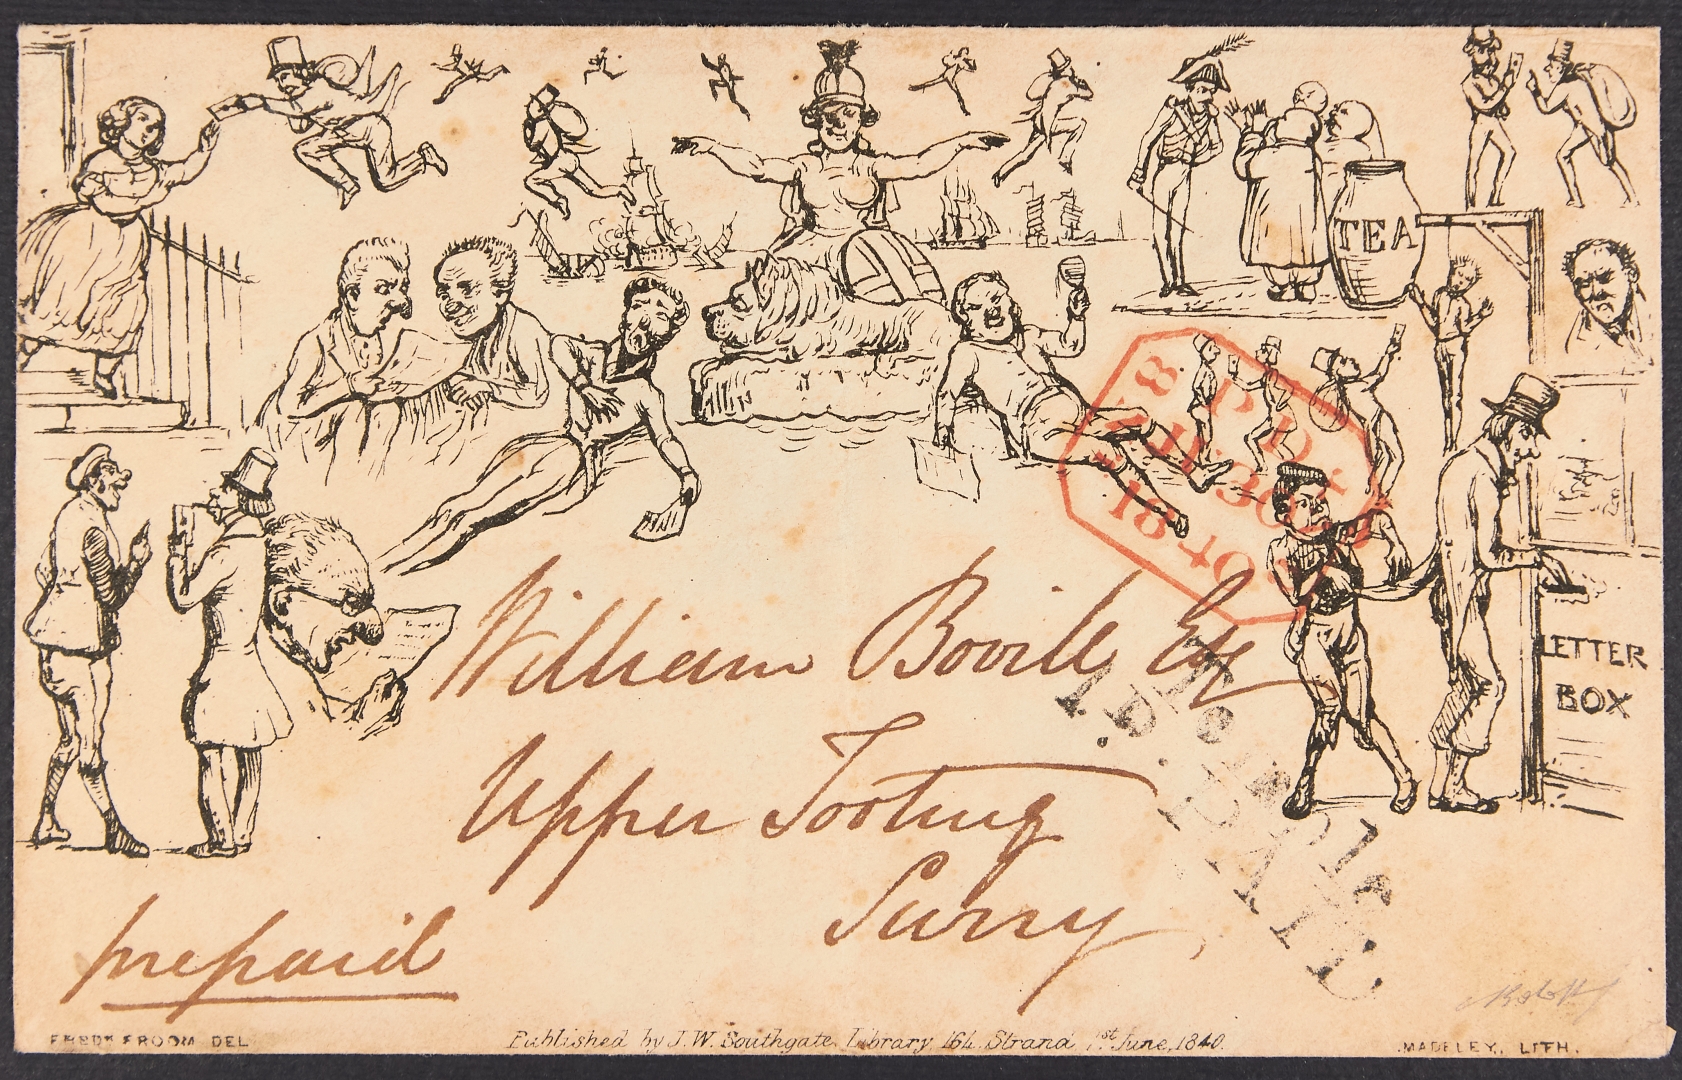 TEA
8 PD
JU 30
1840
LETTER
BOX
William Bovill Esq
Upper Tooting
Surry
prepaid
Temple
1D. PAID
FREDK FROOM DEL
Published by J. W. Southgate, Library, 164, Strand 1st June, 1840.
MADELEY, LITH.